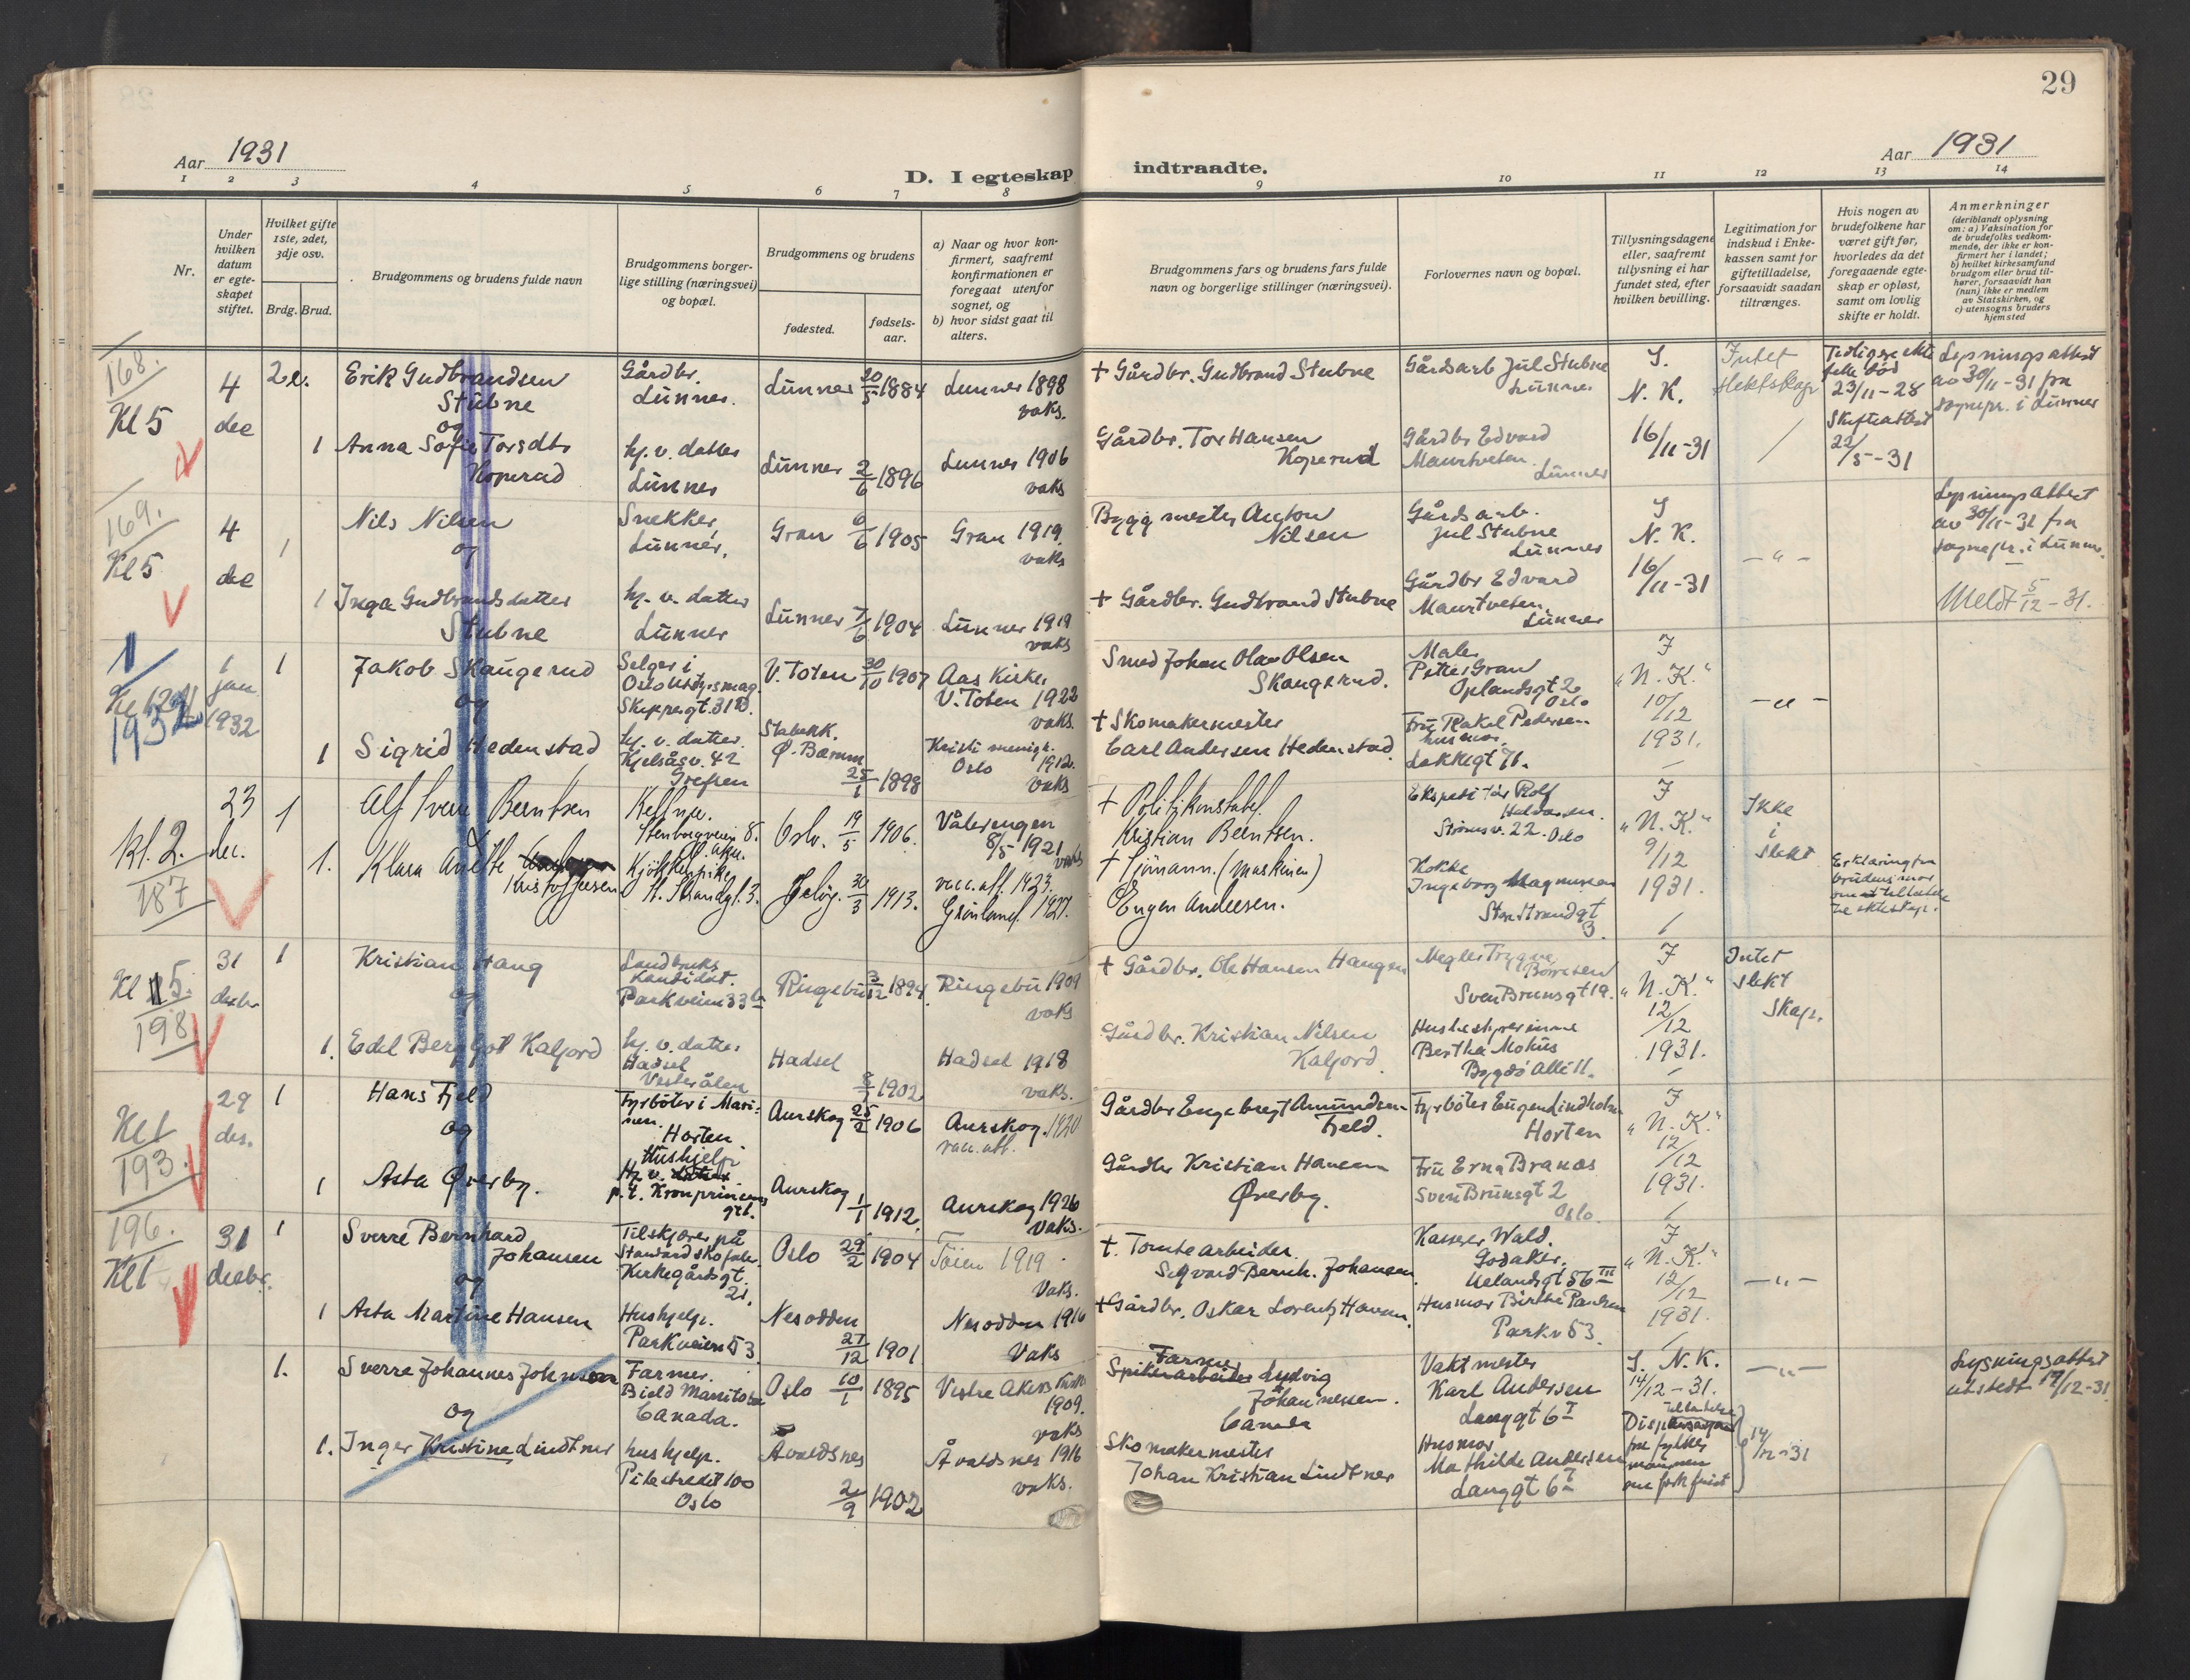 29
Aar 1931
D. I egteskap indtraadte.
Aar 1931
1 2 3 4 5 6 7 8 9 10 11 12 13 14
Nr.
Under hvilken datum er egteskapet stiftet.
Hvilket gifte 1ste, 2det, 3dje osv.
Brdg. Brud.
Brudgommens og brudens fulde navn
Brudgommens borgerlige stilling (næringsvei) og bopæl.
Brudgommens og brudens
fødested.
fødselsaar.
a) Naar og hvor konfirmert, saafremt konfirmationen er foregaat utenfor sognet, og
b) hvor sidst gaat til alters.
Brudgommens fars og brudens fars fulde navn og borgerlige stillinger (næringsvei).
Forlovernes navn og bopæl.
Tillysningsdagene eller, saafremt tillysning ei har fundet sted, efter hvilken bevilling.
Legitimation for indskud i Enkekassen samt for giftetilladelse, forsaavidt saadan tiltrænges.
Hvis nogen av brudefolkene har været gift før, hvorledes da det foregaaende egteskap er opløst, samt om lovlig skifte er holdt.
Anmerkninger
(deriblandt oplysning om: a) Vaksination for de brudefolks vedkommende, der ikke er konfirmert her i landet;
b) hvilket kirkesamfund brudgom eller brud tilhører, forsaavidt han (hun) ikke er medlem av Statskirken, og
c) utensogns bruders hjemsted
168.
Kl 5
4
dec
2
Erik Gudbrandsen
Stubne
og
Gårdbr.
Lunner.
Lunner 20/5 1884
Lunner 1898
vaks.
+ Gårdbr. Gudbrand Stubne
Gårdsarb Jul Stubne
Lunner
N. K.
16/11-31
Intet
slektskap
23/11-28
Skifteattest
22/5-31
Lysningsattest
av 30/11-31 fra
sognepr. i Lunner
1 Anna Sofie Torsdtr
Koperud
hj. v. datter
Lunner
Lunner 2/6 1896
Lunner 1906
vaks
Gårdbr. Tor Hansen
Koperud
Gårdbr Edvard
Maurtveten
Lunner
169.
Kl 5
4
dec
1
Nils Nilsen
og
Snekker,
Lunner,
Gran 6/6 1905
Gran 1919.
vaks
Byggmester Anton
Nilsen
Gårdsarb.
Jul Stubne
Lunner
N. K.
16/11-31
- " -
Lysningsattest
av 30/11-31 fra
sognepr. i Lunner.
1 Inga Gudbrandsdatter
Stubne
hj. v. datter
Lunner
Lunner 7/6 1904
Lunner 1919
vaks
+ Gårdbr. Gudbrand Stubne
Gårdbr Edvard
Maurtveten
Lunner
Meldt 5/12-31.
1
1932
1
jan
1932
1
Jakob Skaugerud
og
Selger i
Skippergt. 31
V. Toten 30/10 1907
Aas Kirke
V. Toten 1922
vaks.
Smed Johan Olav Olsen
Skaugerud.
Maler
Petter Gran
Oplandsgt 2
Oslo
"N. K."
10/12
1931.
- " -
1 Sigrid Hedenstad
hj. v. datter
Kjelsåsv. 42
Grefsen
Stabekk.
Ø. Bærum
25/1 1898
Kristi menigh.
Oslo 1912.
vaks
+ Skomakermester
Carl Andersen Hedenstad
Fru Rakel Pedersen
husmor.
Løkkegt 71.
23
dec.
kl. 2.
187
1
Alf Berntsen
Oslo. 19/5 1906.
Vålerengen
8/5 1921
vaks
+ Politikonstabel
Kristian Berntsen.
Ekspeditør Rolf
Strømsv. 22. Oslo
"N. K."
9/12
1931.
Ikke
i
slekt
1. Klara Anette
Kristoffersen
Kjøkkenpike
St. Strandgt. 3.
30/3 1913.
vacc. att. 1923.
Grønland 1927.
+ Sjømann. (maskinen)
Eugen Andersen.
Kokke
Ingeborg Magnussen
Store Strandgt
3.
Erklæring fra
brudens mor
31
decbr
Kl 5.
198
1
Kristian Haug
og
Landbruks
kandidat.
Parkveien 33
Ringebu 3/12 1894
Ringebu 1909
vaks
+ Gårdbr. Ole Hansen Haugen
Megler Trygve
Børresen
Sven Brunsgt 19.
"N. K."
12/12
1931.
Intet
slekt
skap.
1. Edel Bergljot Kaljord
hj. v. datter
Hadsel
Vesterålen
Hadsel
8/7 1902
Hadsel 1918
vaks.
Gårdbr. Kristian Nilsen
Kaljord.
Husbestyrerinne
Bertha Mohus
Bygdø Allé 11.
29
des.
Kl 1
193.
1
Hans Fjeld
og
Fyrbøter i Marinen.
Horten.
Aurskog 25/2 1906
Aurskog. 1920
vacc. att.
Gårdbr Engebregt Amundsen
Fjeld.
Fyrbøter Eugen Lindholm
Horten
"N. K."
12/12
1931.
1 Asta Øverby.
Hushjelp
Aurskog 1/1 1912.
Aurskog 1926
vaks.
Gårdbr Kristian Hansen
Øverby.
Fru Erna Branæs
Sven Brunsgt 2
Oslo.
196.
Kl 1
31
decbr.
1
Sverre Bernhard
Johansen
og
Tilskjærer på
Standard skofabr.
Kirkegårdsgt.
21.
Oslo 29/2 1904
Tøien 1919.
Vaks.
+. Tomtearbeider.
Sigvard Bernh. Johansen.
Kasserer Wald.
Godaker.
Uelandsgt 56 III
"N. K."
12/12
1931.
- " -
1 Asta Martine Hansen
Hushjelp.
Parkveien 53
Nesodden
27/12 1901
Nesodden 1916
Vaks
+ Gårdbr. Oskar Lorentz Hansen.
Husmor Birthe Paulsen
Parkv 53.
1.
Sverre Johannes Johnsen
og
Farmer.
Canada.
Oslo 10/1 1895
Vestre Akers Kirke
1909.
vaks
Farmer
Spikerarbeider Ludvig
Johannessen.
Canada
Vaktmester
Karl Andersen
Langgt 6 I
N. K.
14/12-31.
- " -
Lysningsattest
utstedt 19/12-31
1. Inger Kristine Lindtner
hushjelp.
Pilestredet 100
Oslo
Avaldsnes
2/9 1902
Åvaldsnes 1916
vaks.
Skomakermester
Johan Kristian Lindtner
Husmor
Mathilde Andersen
Langgt 6 I
fra fylkes
mannen
14/12-31